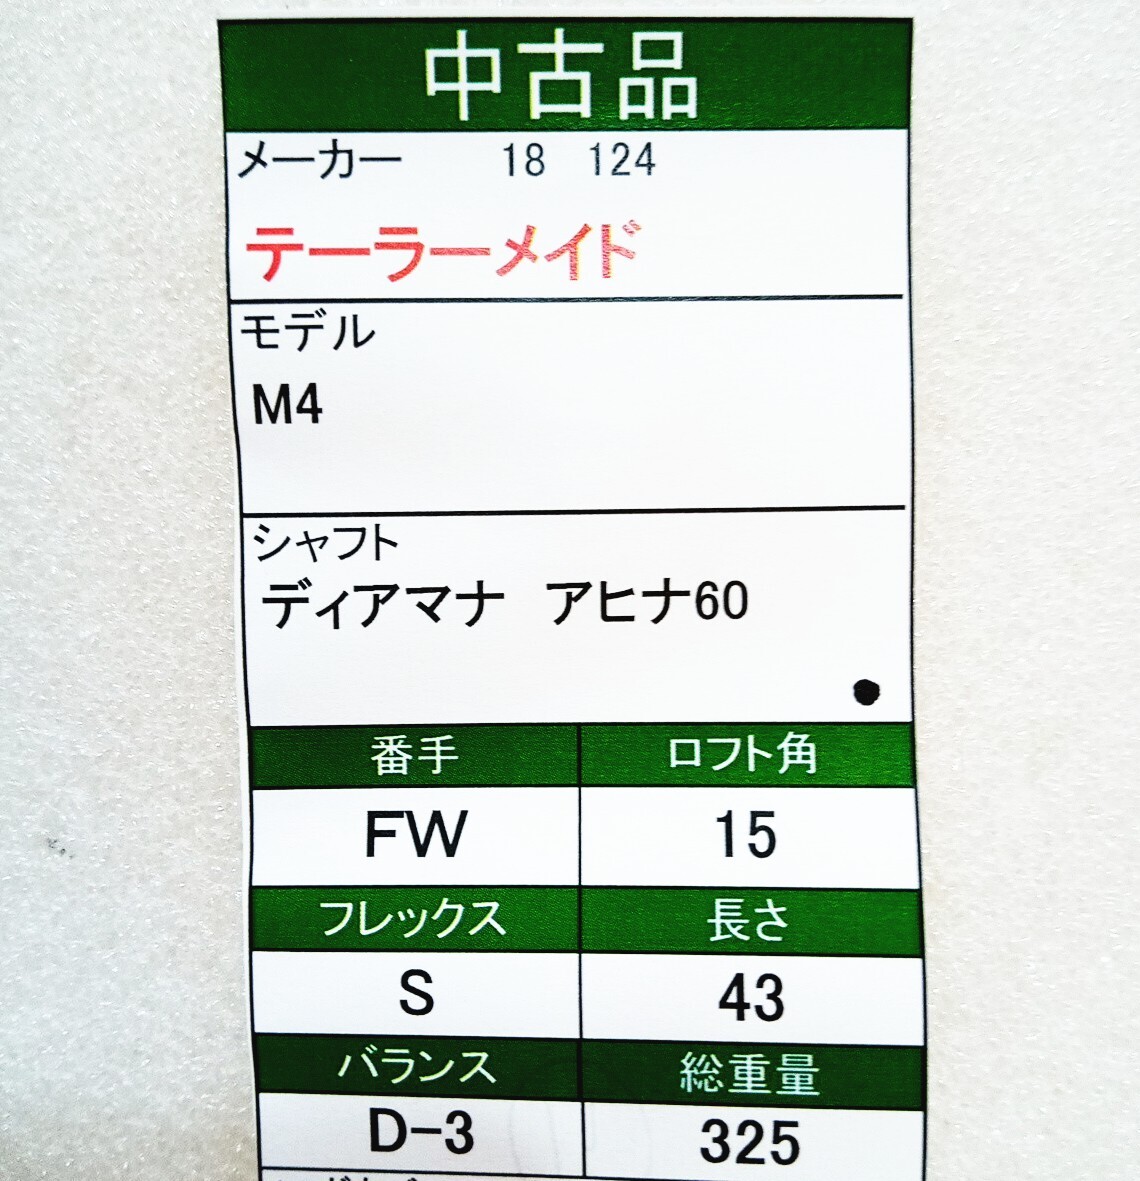 中古品
メーカー 18 124
テーラーメイド
モデル
M4
シャフト
ディアマナ アヒナ60
番手 ロフト角
FW 15
フレックス 長さ
S 43
バランス 総重量
D-3 325